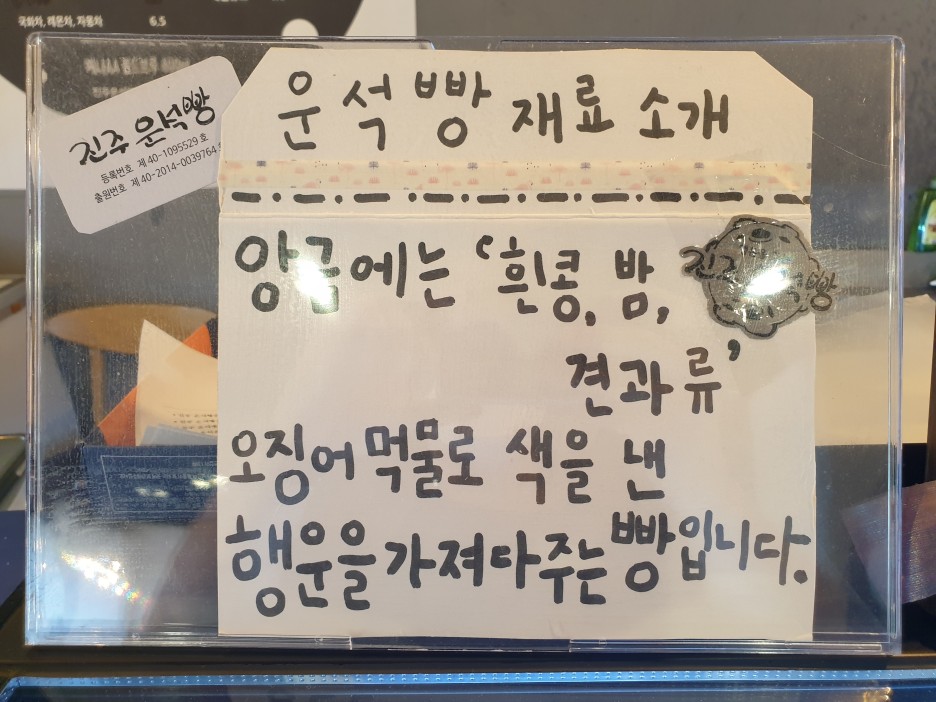 국화차, 레몬차, 자몽차 6.5
진주 운석빵
등록번호 제 40-1095529 호
출원번호 제 40-2014-0039764 호
운석빵 재료 소개
앙금에는 '흰콩, 밤,
견과류'
오징어 먹물로 색을 낸
행운을 가져다주는 빵입니다.
진주 빵